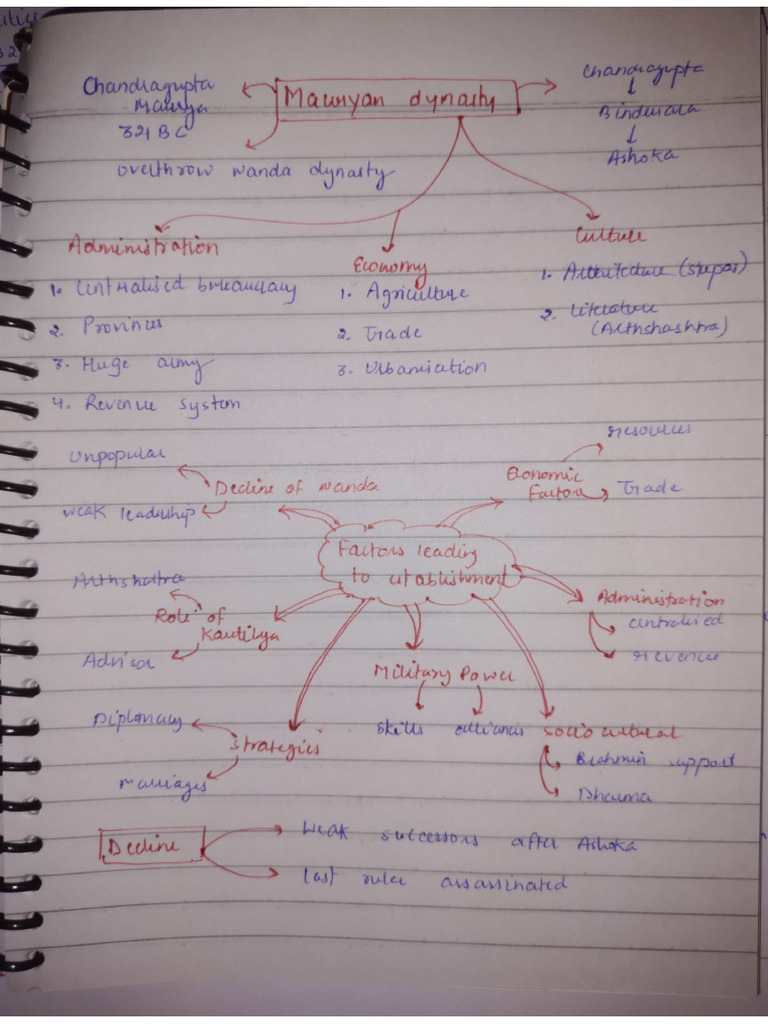 Chandragupta
Maurya
321 BC
overthrow nanda dynasty
Mauryan dynasty
Chandragupta
Bindusara
Ashoka
Administration
1. Centralised bureaucracy
2. Provinces
3. Huge army
4. Revenue system
Economy
1. Agriculture
2. Trade
3. Urbanisation
Culture
1. Architecture (stupas)
2. Literature
(Arthshashtra)
Factors leading
to establishment
Decline of nanda
Unpopular
weak leadership
Economic
Factors
resources
Trade
Role of
Kautilya
Arthshastra
Advisor
Administration
centralised
revenue
Military Power
skills alliances
Strategies
Diplomacy
marriages
socio cultural
Brahmin support
Dharma
Decline
Weak successors after Ashoka
last ruler assassinated